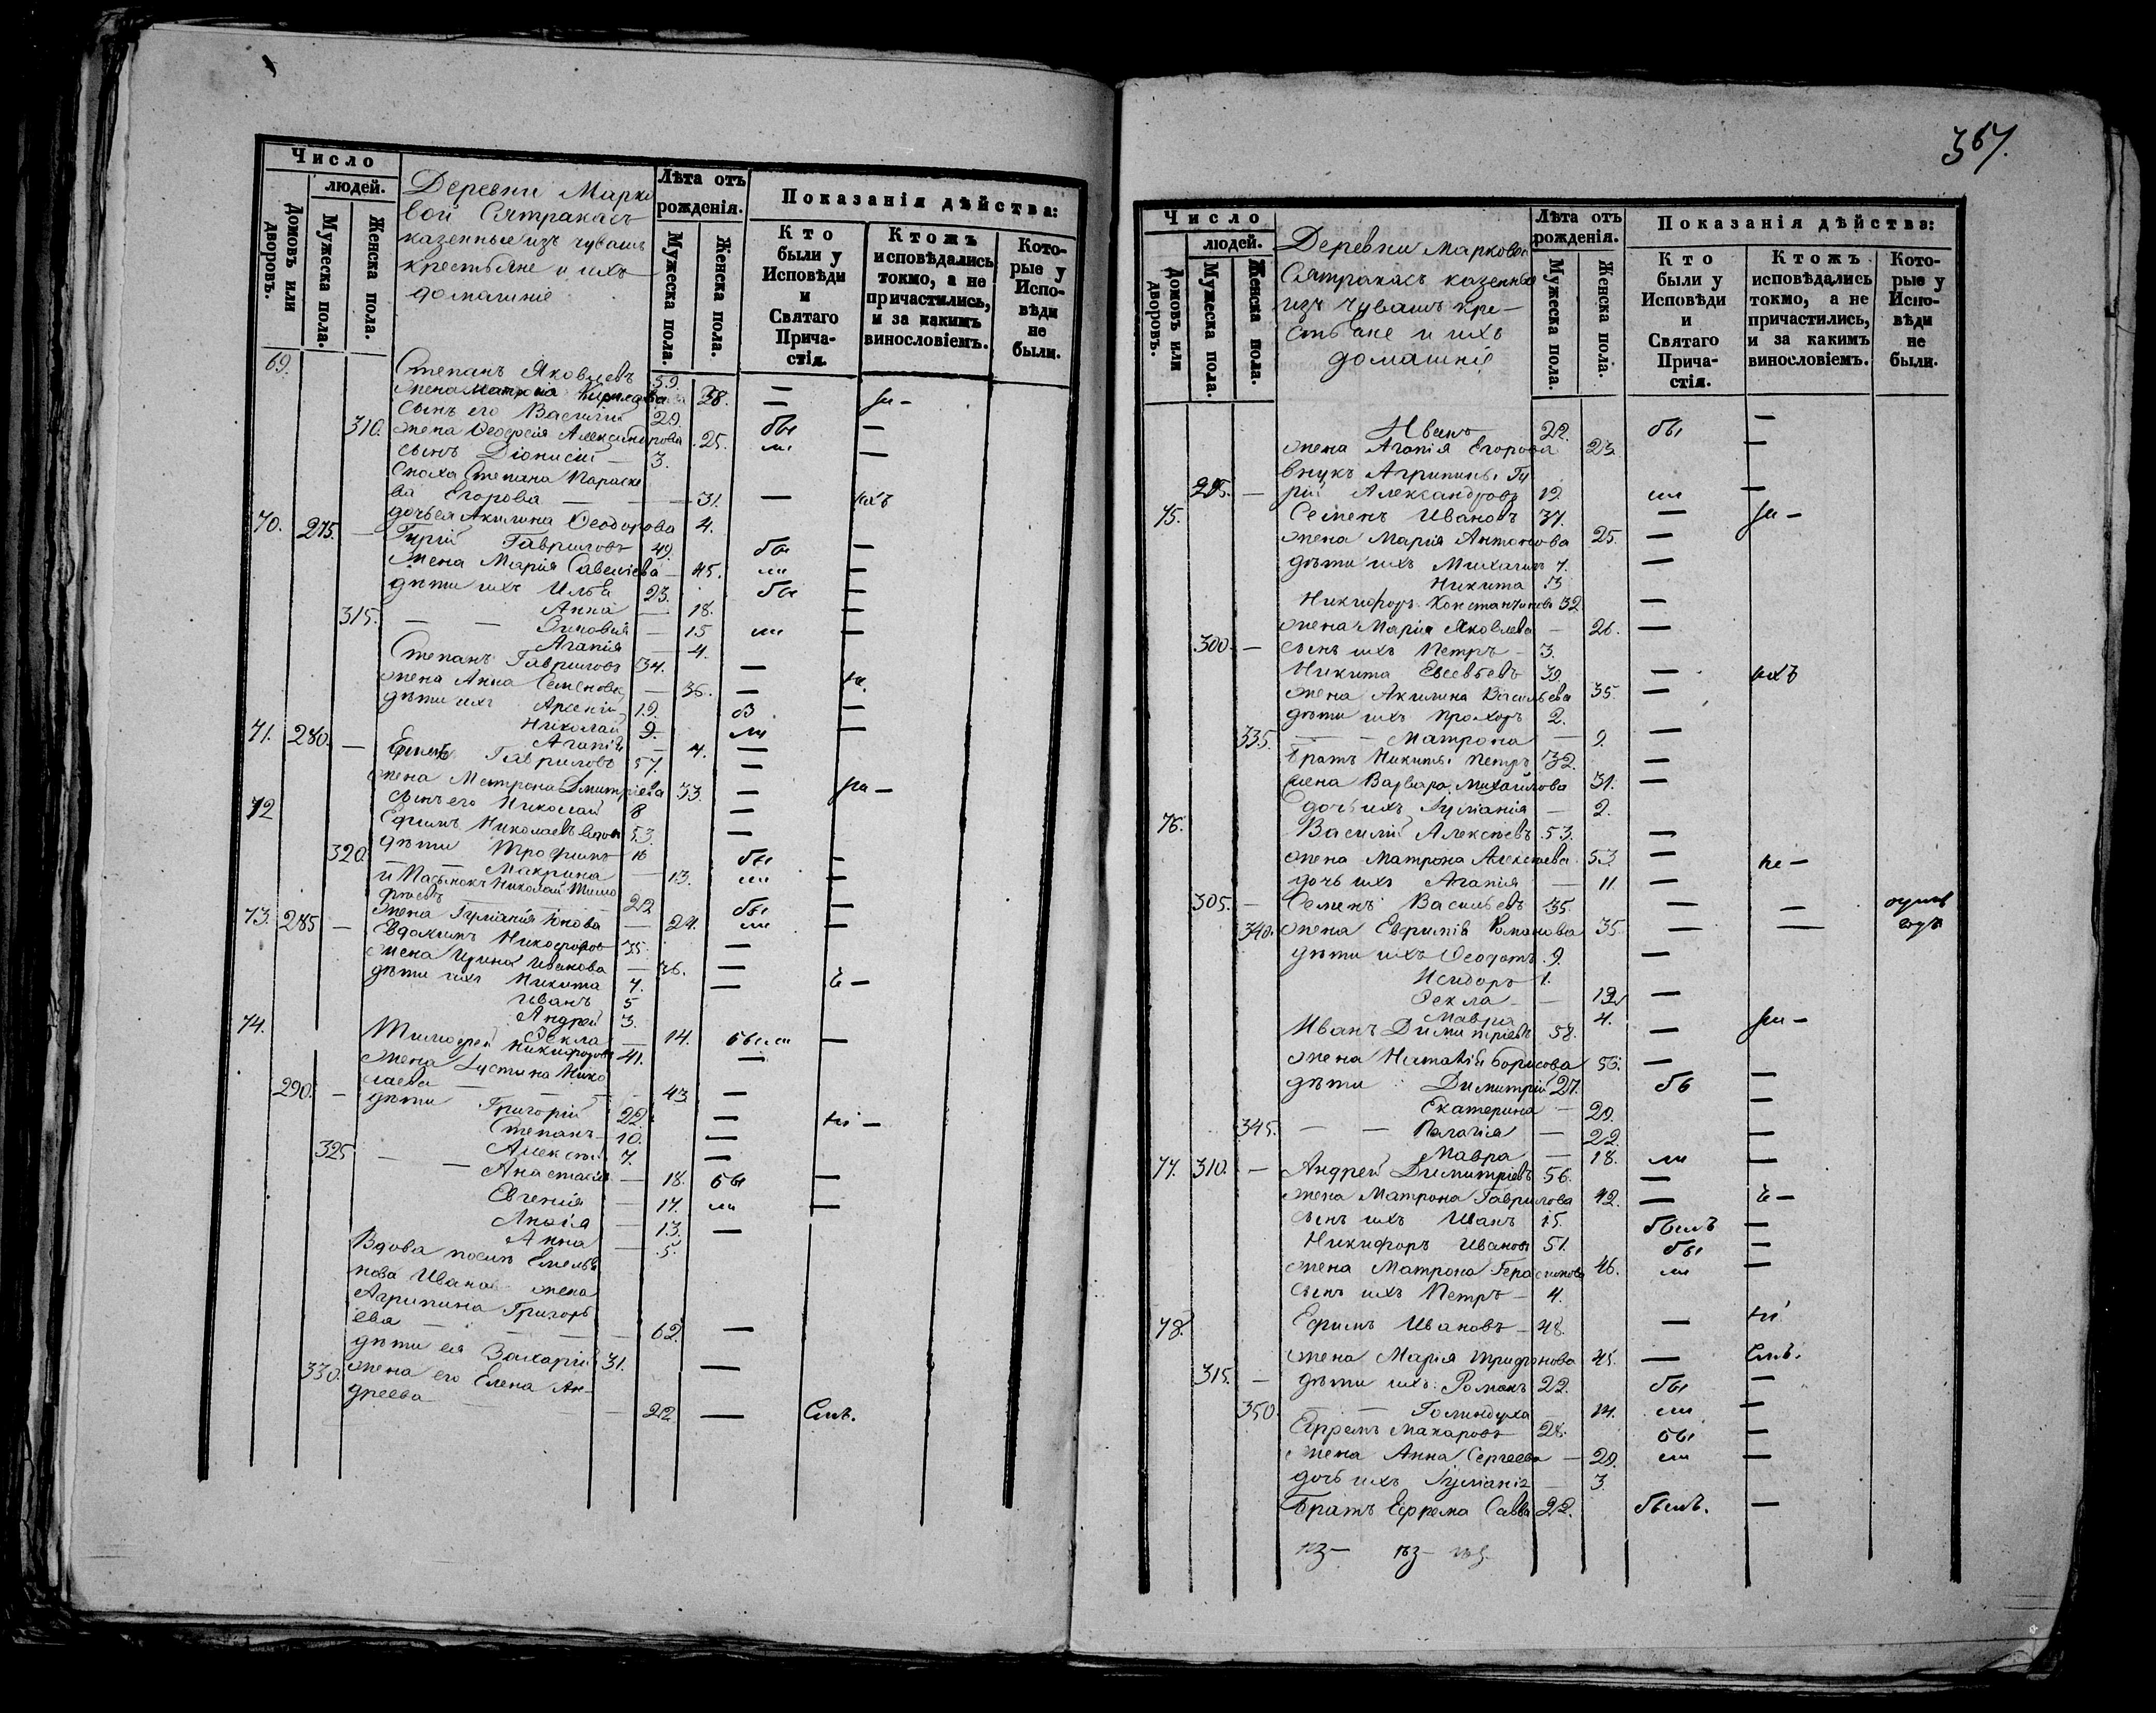 Число
людей.
Домовъ или дворовъ.
Мужеска пола.
Женска пола.
Деревни Марко
вой Сятракасъ
казенные изъ чувашъ
крестьяне и ихъ
домашніе
Лѣта отъ рожденія.
Мужеска пола.
Женска пола.
Показанія дѣйства:
Кто были у Исповѣди и Святаго Причастія.
Ктожъ исповѣдались токмо, а не причастились, и за какимъ винословіемъ.
Которые у Исповѣди не были.
69. Степанъ Яковлевъ 59. —
жена Матрона 38. —
сынъ его Василій 29. бы —
310. жена Ѳеодосія Александрова 25. ли —
сынъ Діонисій — 3.
сноха Степана Параске
ва Егорова — 31. —
дочь ея Акилина Ѳеодорова 4.
70. 275. — Гурій Гавриловъ 49. бы —
жена Марія Савельева — 45. ли —
дѣти ихъ Илья 23. бы —
Анна — 18. —
315. — — Зиновія — 15 ли —
Агапія — 4.
Степанъ Гавриловъ 34. —
жена Анна Семенова — 36. —
дѣти ихъ Арсеній 19. —
Николай 9. ли —
Агапія — 4. —
71. 280. — Гавриловъ 57. —
жена Матрона Дмитріева 33. —
сынъ его Николай 8
72 Ефимъ Николаевъ вдовъ 53. —
дѣти Трофимъ 16 бы —
320. Макрина — 13. ли —
и Пасынокъ Николай Тимо
фѣевъ 22 бы —
жена Іуліанія — 24. ли —
73. 285 — Евдокимъ Никифоровъ 35. —
жена Ирина Иванова — 36. —
дѣти ихъ Никита 7. —
Иванъ 5
Андрей 3.
Ѳекла — 14. были —
74. Тимофей Никифоровъ 41. —
жена Іустина Нико
лаева — 43 —
290. — дѣти Григорій 22. —
Степанъ 10. —
Алексѣй 7. —
325 — — Анастасія — 18. бы —
Евгенія — 17. ли —
— 13. —
Анна — 5.
Вдова послѣ Емелья
нова Иванова жена
Агрипина Григорь
ева — — — 62. —
дѣти ея Захарій 31. —
330. жена его Елена Ан-
дреева — 22 —
367.
Число
людей.
Домовъ или дворовъ.
Мужеска пола.
Женска пола.
Деревни Марковой
Сятракасъ казенные
изъ чувашъ кре-
стьяне и ихъ
домашніе
Лѣта отъ рожденія.
Мужеска пола.
Женска пола.
Показанія дѣйства:
Кто были у Исповѣди и Святаго Причастія.
Ктожъ исповѣдались токмо, а не причастились, и за какимъ винословіемъ.
Которые у Исповѣди не были.
Иванъ 22. бы —
жена Агапія Егорова 23. —
внукъ Агрипины Гу
295. — рій Александровъ 19. ли —
75. Семенъ Ивановъ 37. —
жена Марія Антонова 25. —
дѣти ихъ Михаилъ 7. —
Никита 3
Никифоръ Константиновъ 32. —
жена Марія Яковлева — 26. —
300. — сынъ ихъ Петръ — 3.
Никита Евсевьевъ 39. —
жена Акилина Васильева 35. —
дѣти ихъ Прохоръ 2.
335. — — Матрона — 9. —
братъ Никиты Петръ 32. —
жена Варвара Михайлова 31. —
дочь ихъ Іуліанія — 2.
76. Василій Алексѣевъ 53. —
жена Матрона Алексѣева 53 —
дочь ихъ Агапія — 11. —
305. — Семенъ Васильевъ 35. — —
340. жена Евфимія Романова 35. — —
дѣти ихъ Ѳеодотъ 9. —
Исидоръ 1.
Ѳекла — 12 —
Мавра — 4.
Иванъ Димитріевъ 58. —
жена Наталія Борисова 55. —
дѣти Димитрій 27. бы —
Екатерина — 29. —
345. — — Пелагія — 22. —
Мавра — 18. ли —
77. 310. — Андрей Димитріевъ 56. —
жена Матрона Гаврилова 42. —
сынъ ихъ Иванъ 15. былъ —
Никифоръ Ивановъ 51. бы —
жена Матрона Герасимова 46. ли —
сынъ ихъ Петръ — 4.
78. Ефимъ Ивановъ — 48. —
жена Марія Трифонова 45. —
315. — дѣти ихъ: Романъ 22. бы —
350. — Голиндуха — 14. ли —
Ефремъ Макаровъ 28. бы —
жена Анна Сергеева — 29. ли —
дочь ихъ Іуліанія — 3.
Братъ Ефрема Савва 22. былъ. —